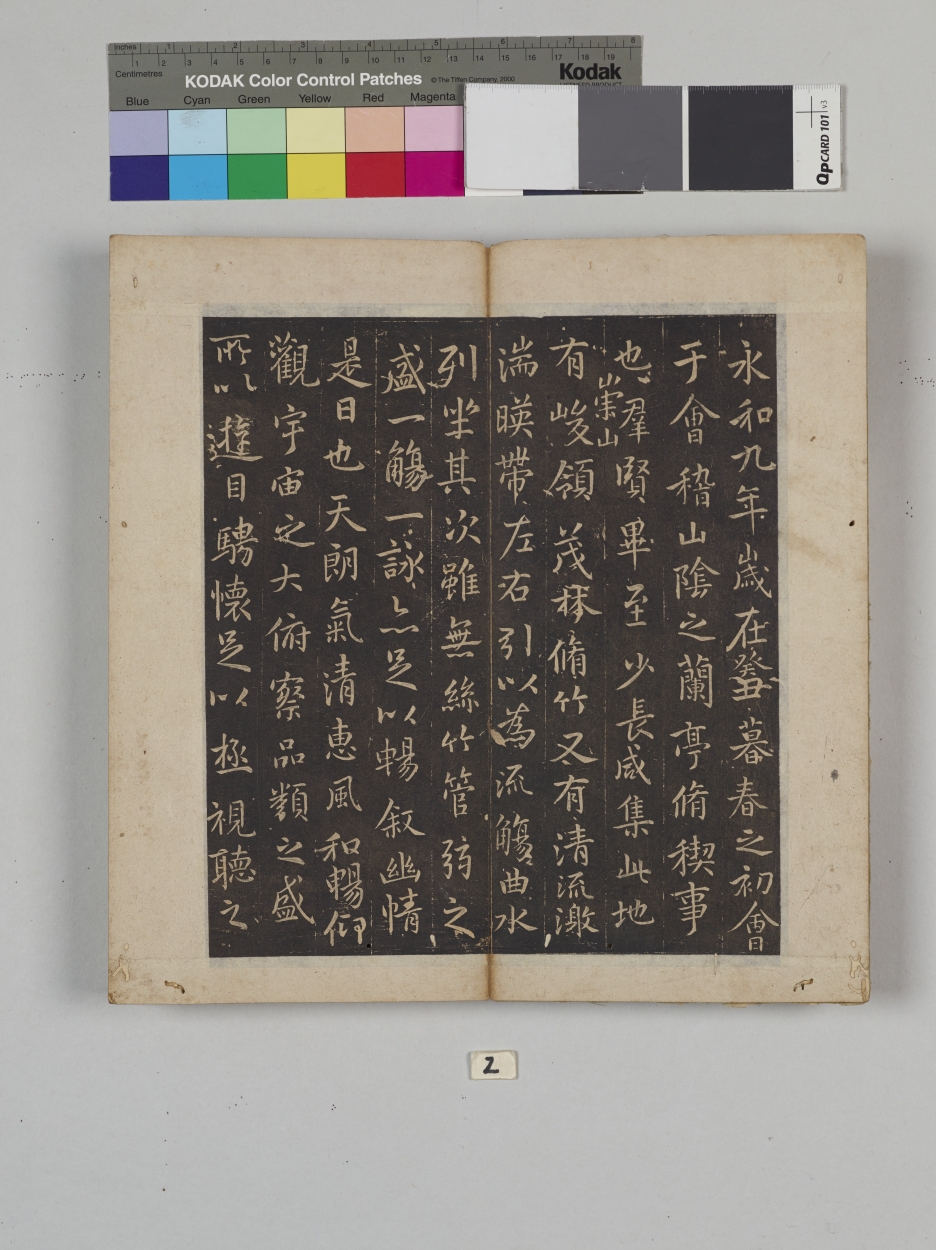 Inches 1 2 3 4 5 6 7 8
Centimetres 1 2 3 4 5 6 7 8 9 10 11 12 13 14 15 16 17 18 19
KODAK Color Control Patches © The Tiffen Company, 2000 Kodak
LICENSED PRODUCT
Blue Cyan Green Yellow Red Magenta
QPCARD 101 v3
永和九年歲在癸丑暮春之初會
于會稽山陰之蘭亭脩稧事
也羣賢畢至少長咸集此地
有崇山峻領茂林脩竹又有清流激
湍暎帶左右引以為流觴曲水
列坐其次雖無絲竹管弦之
盛一觴一詠亦足以暢叙幽情
是日也天朗氣清惠風和暢仰
觀宇宙之大俯察品類之盛
所以遊目騁懷足以極視聽之
2